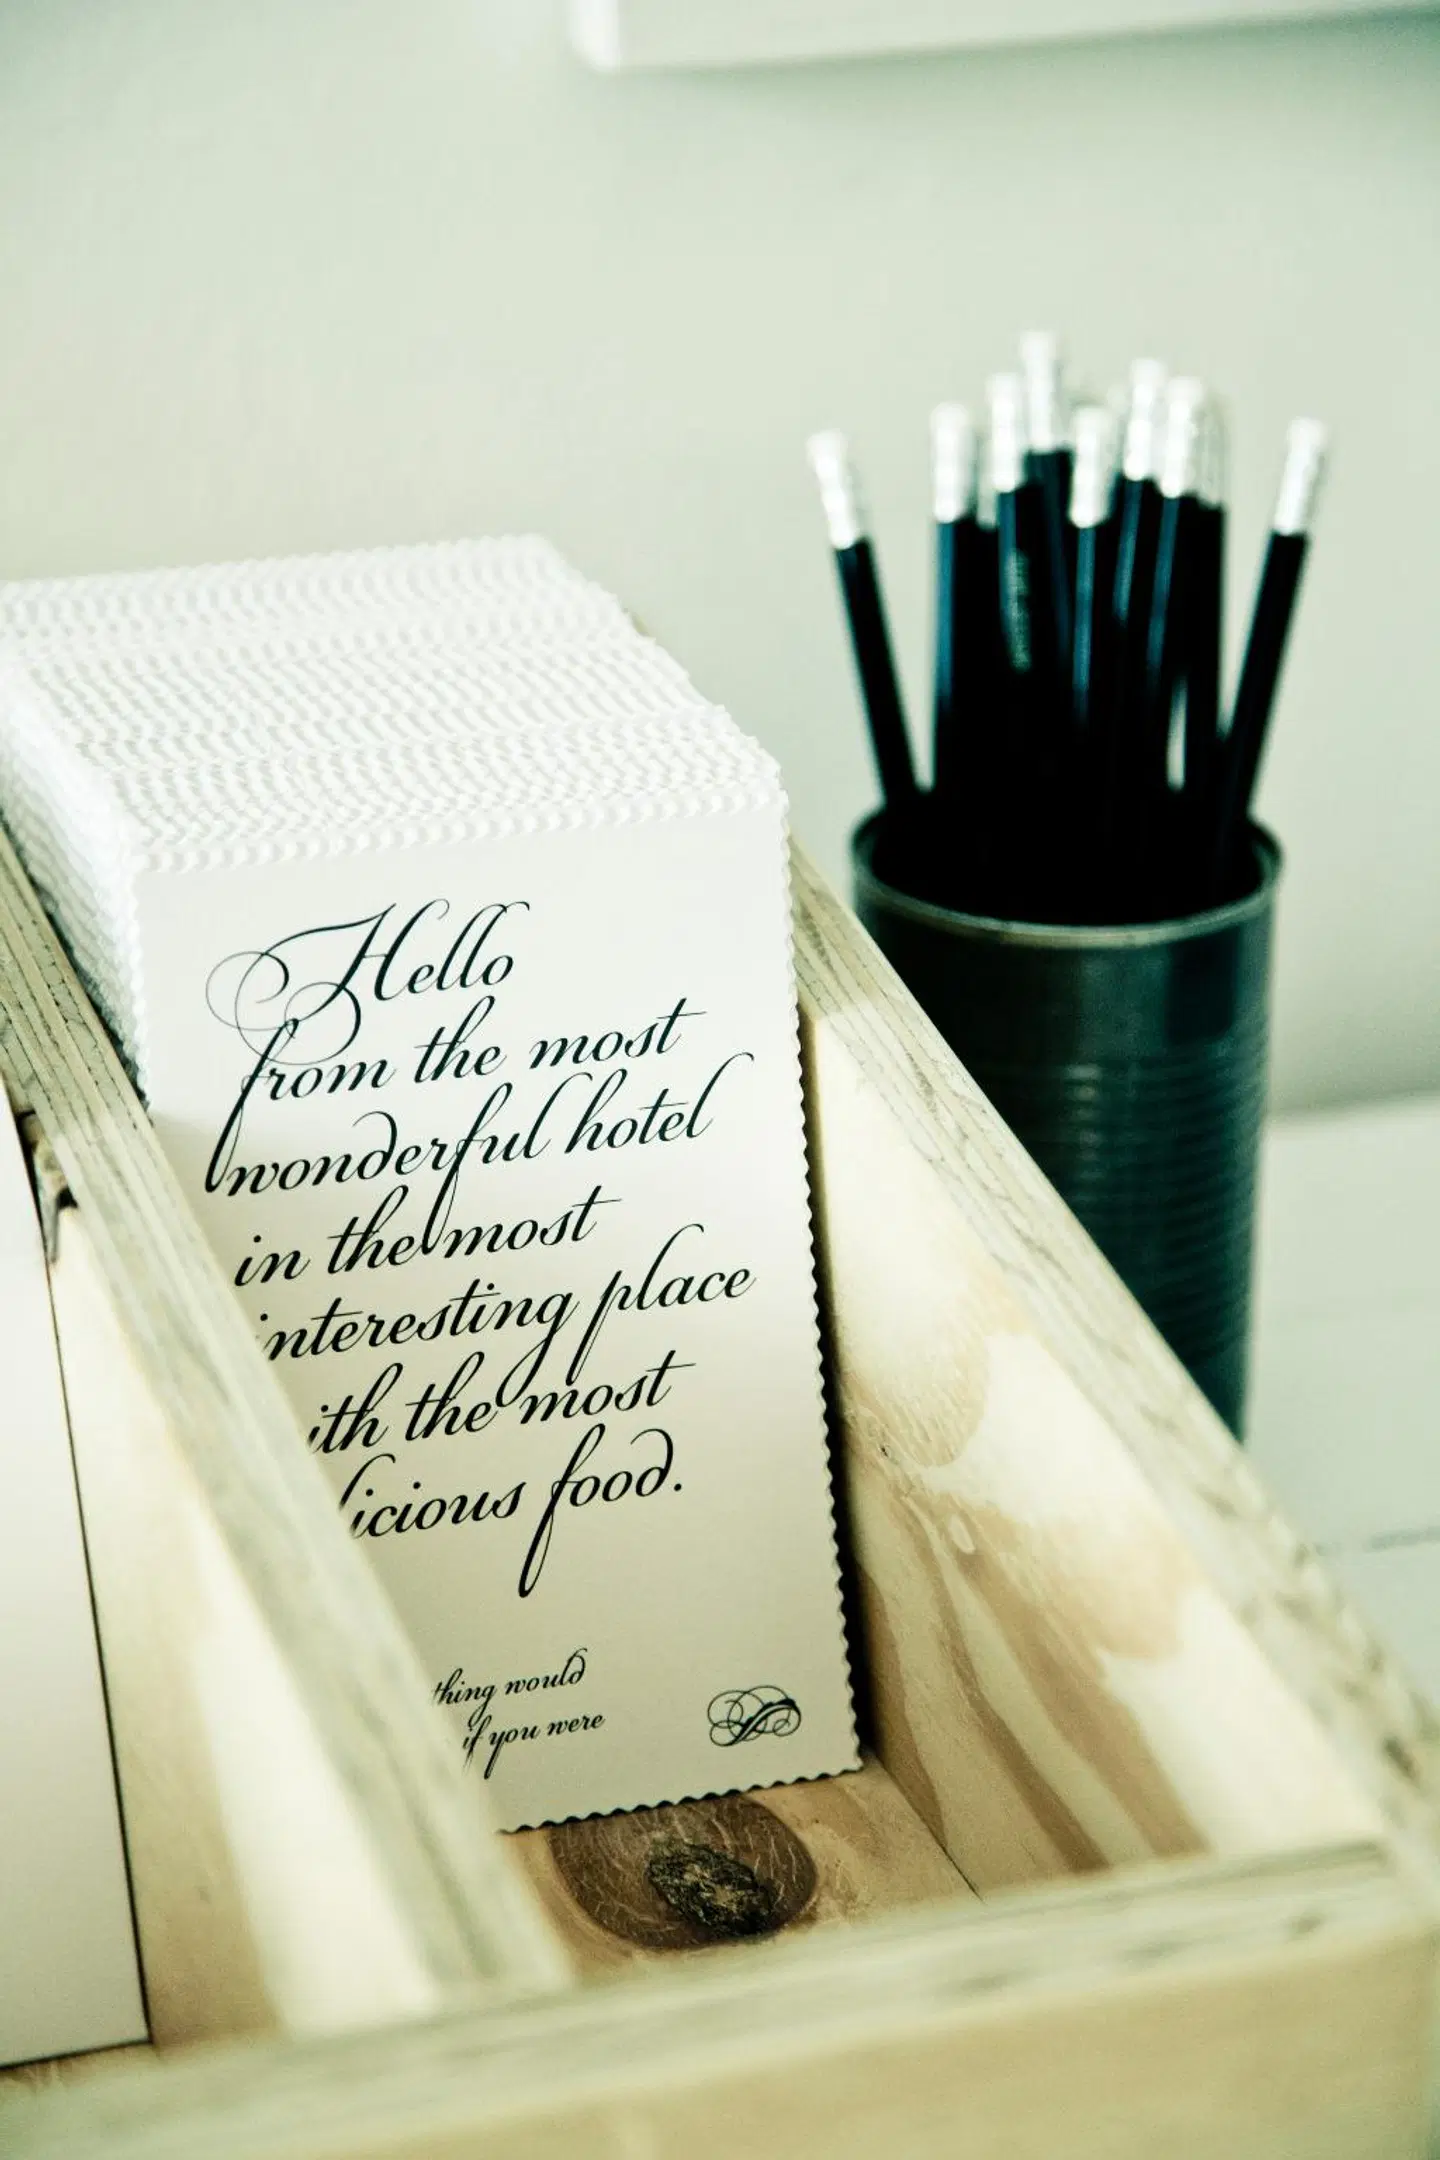 Hello
from the most
wonderful hotel
in the most
interesting place
ith the most
licious food.
thing would
if you were